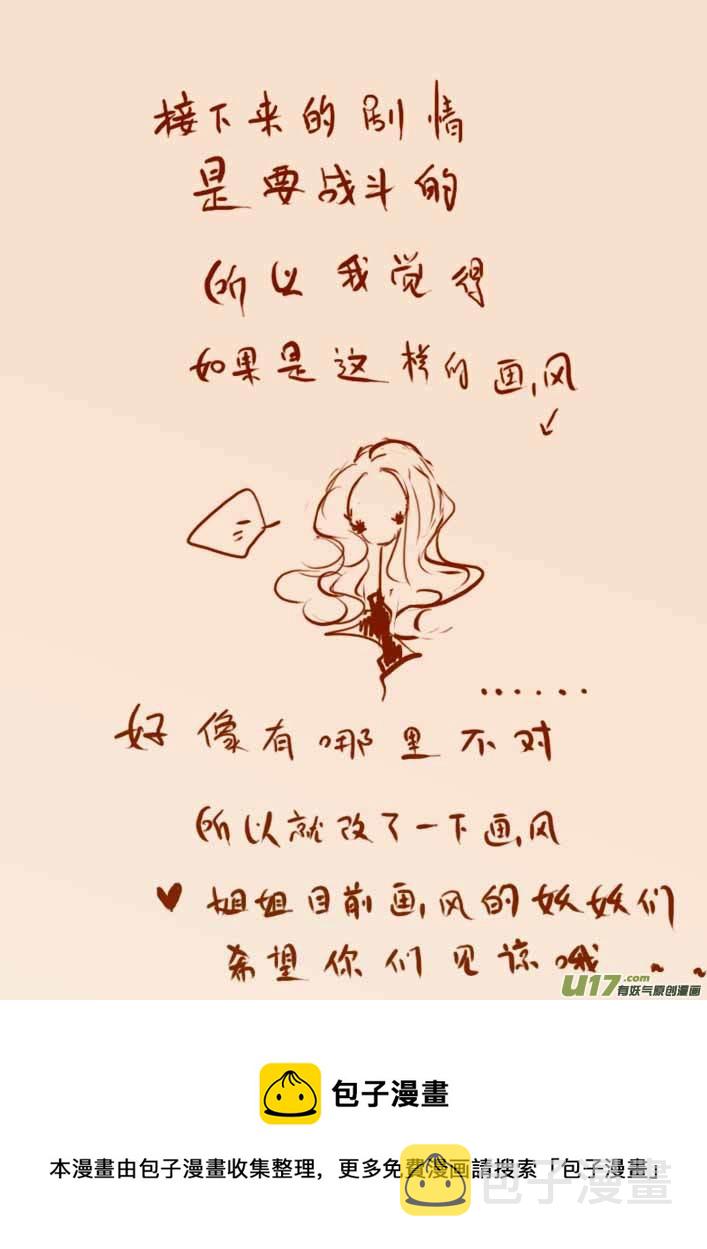 接下来的剧情
是要战斗的
所以我觉得
如果是这样的画风
↙
......
好像有哪里不对
所以就改了一下画风
♥ 姐姐目前画风的妖妖们
希望你们见谅哦~~
U17.com
有妖气原创漫画
包子漫畫
本漫畫由包子漫畫收集整理,更多免費漫画請搜索「包子漫畫」
包子漫畫